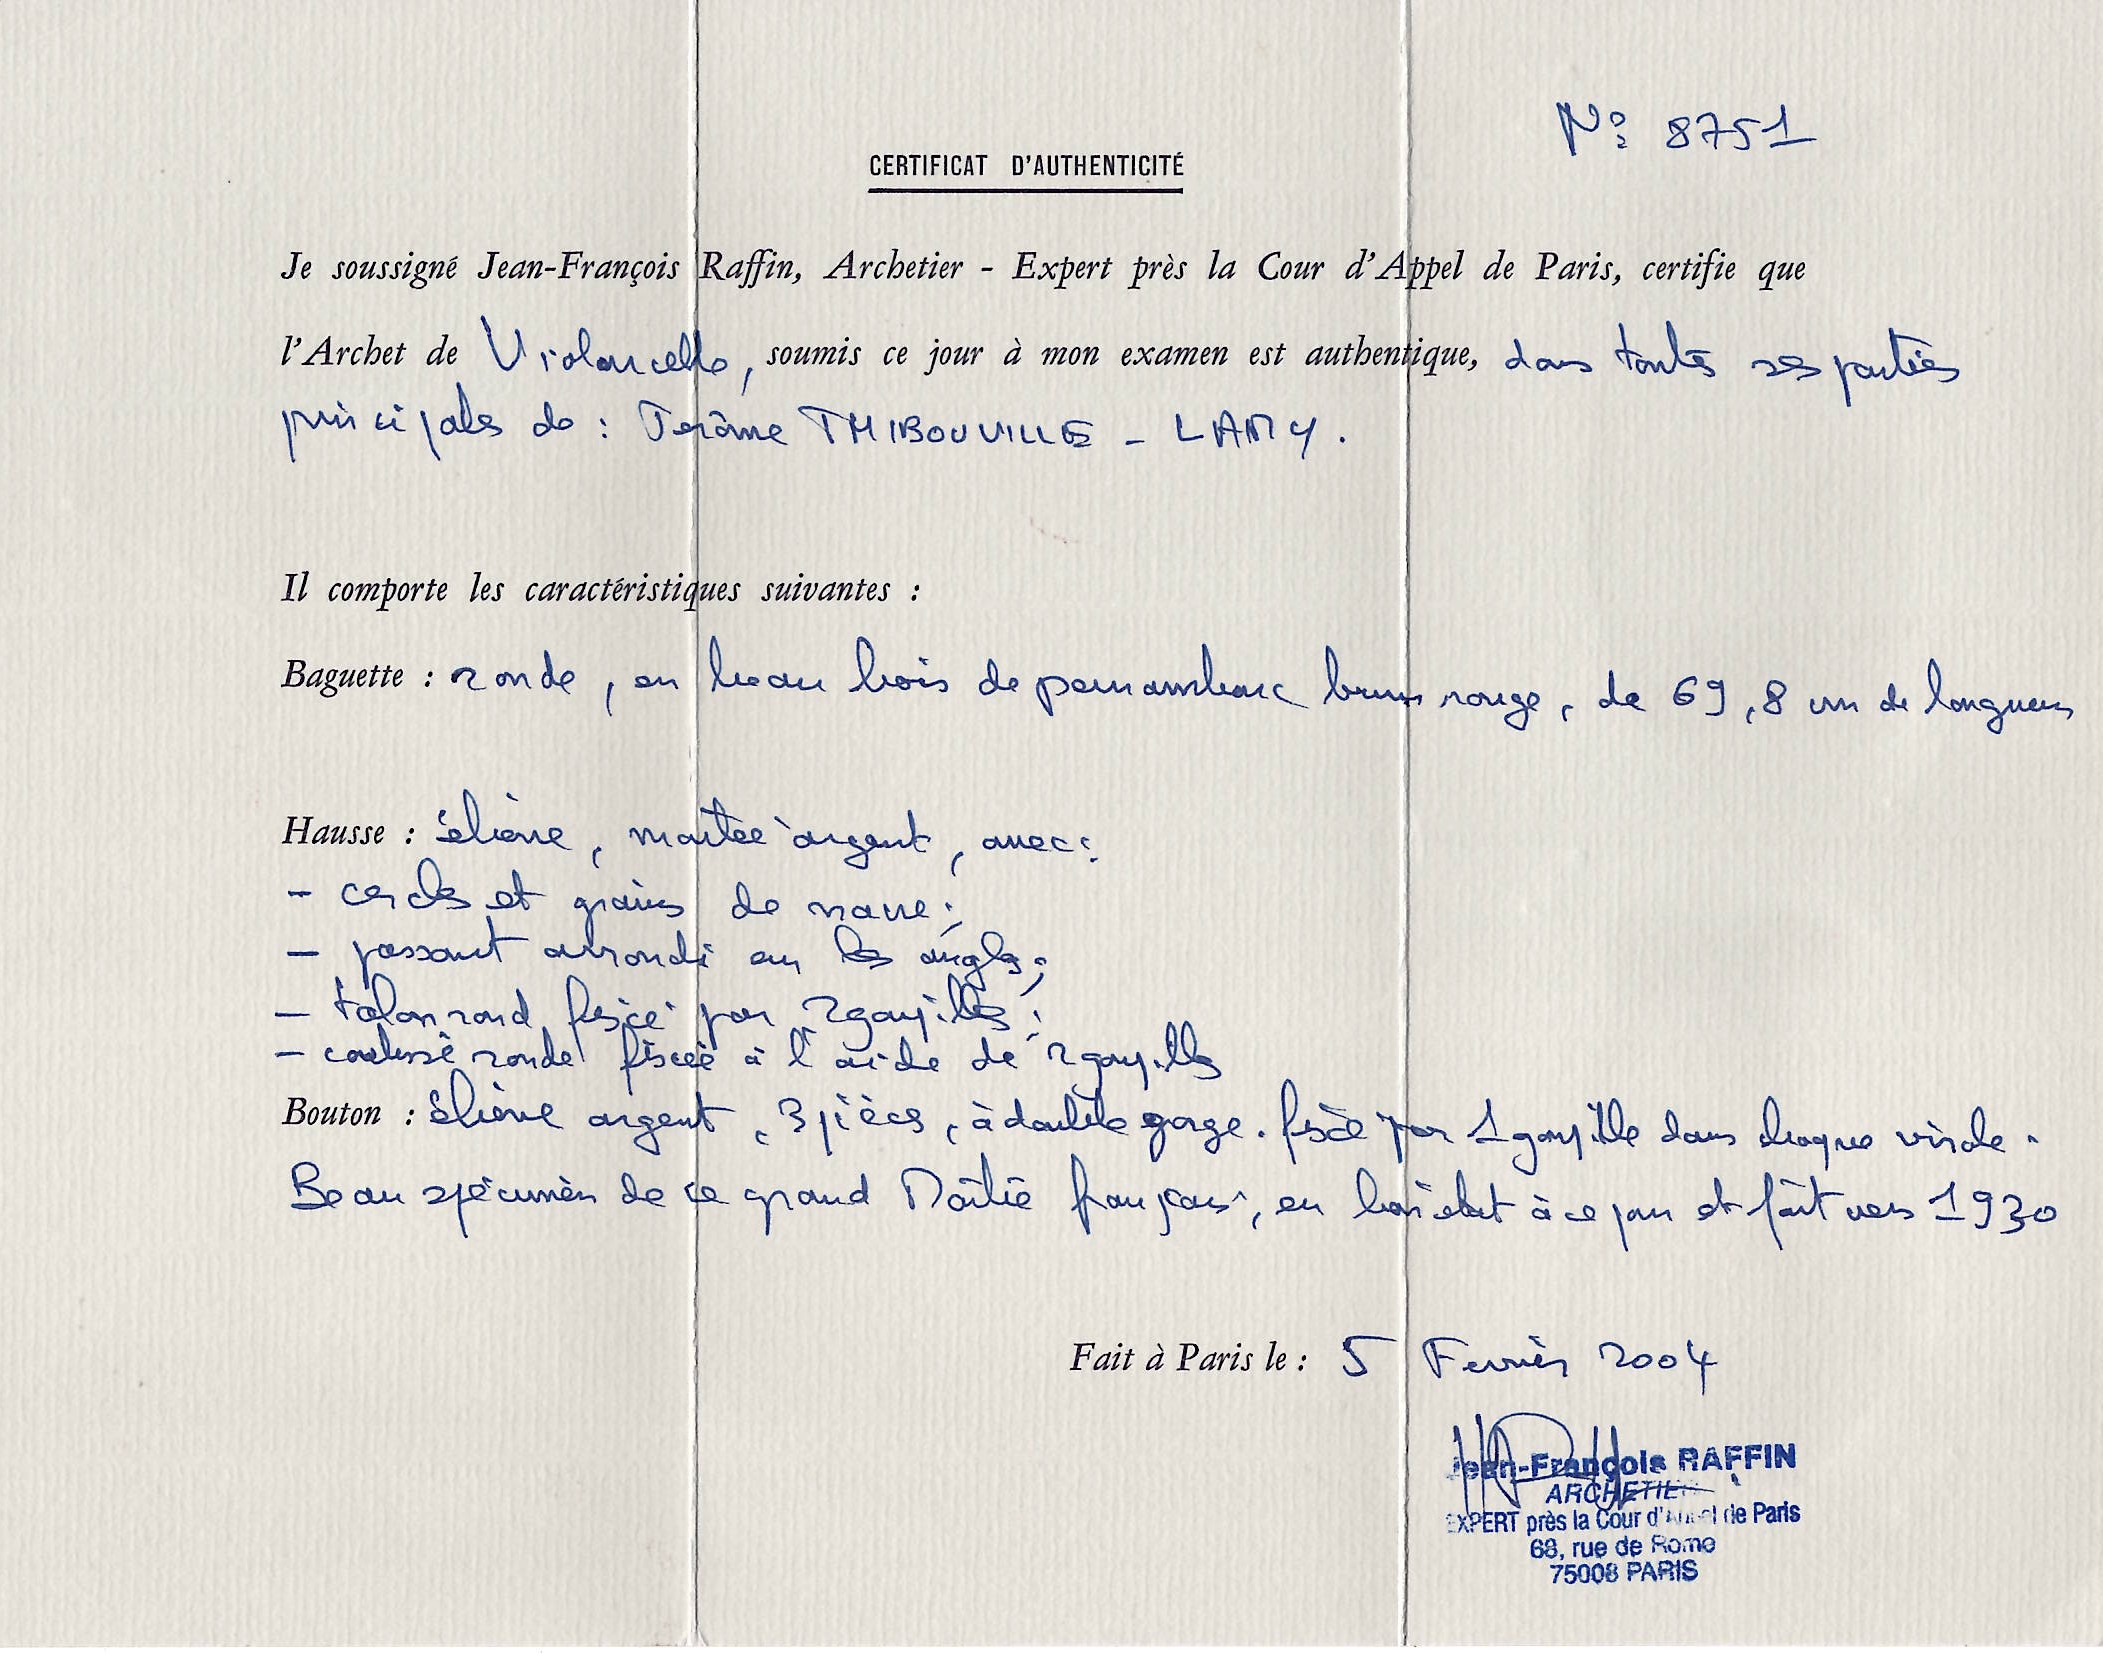 N° 8751
CERTIFICAT D'AUTHENTICITÉ
Je soussigné Jean-François Raffin, Archetier - Expert près la Cour d'Appel de Paris, certifie que
l'Archet de Violoncelle, soumis ce jour à mon examen est authentique, dans toutes ses parties
principales de : Jerôme THIBOUVILLE - LAMY.
Il comporte les caractéristiques suivantes :
Baguette : ronde, en beau bois de pernambouc brun rouge, de 69,8 cm de longueur
Hausse : ébène, montée argent, avec :
- cercles et grains de nacre ;
- passant arrondi sur les angles ;
- talon rond fixé par 2 goupilles ;
- coulisse ronde fixée à l'aide de 2 goupilles
Bouton : ébène argent, 3 pièces, à double gorge. fixé par 1 goupille dans chaque virole.
Beau spécimen de ce grand Maître français, en bon état à ce jour et fait vers 1930
Fait à Paris le : 5 Fevrier 2004
Jean-François RAFFIN
ARCHETIER
EXPERT près la Cour d'Appel de Paris
68, rue de Rome
75008 PARIS